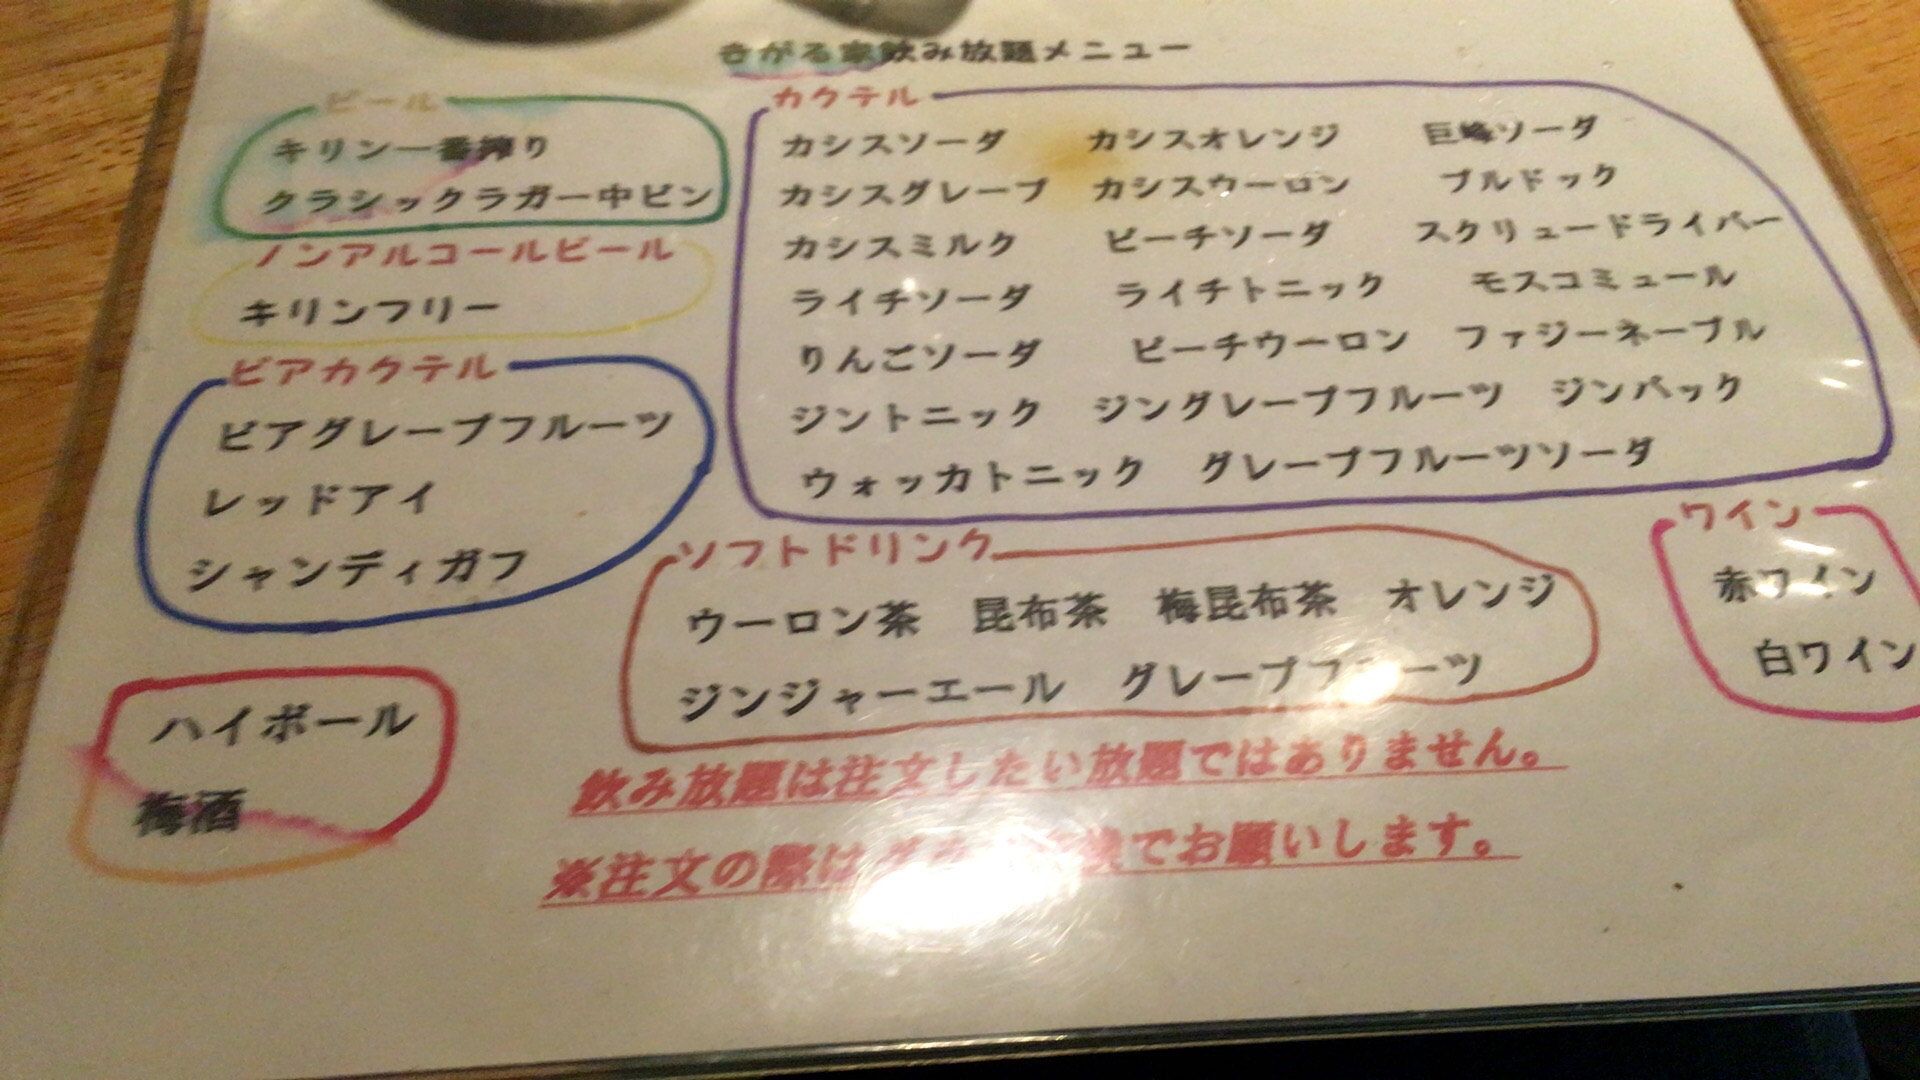 きがる家飲み放題メニュー
ビール
キリン一番搾り
クラシックラガー中ビン
ノンアルコールビール
キリンフリー
ビアカクテル
ビアグレープフルーツ
レッドアイ
シャンディガフ
ハイボール
梅酒
カクテル
カシスソーダ カシスオレンジ 巨峰ソーダ
カシスグレープ カシスウーロン ブルドック
カシスミルク ピーチソーダ スクリュードライバー
ライチソーダ ライチトニック モスコミュール
りんごソーダ ピーチウーロン ファジーネーブル
ジントニック ジングレープフルーツ ジンバック
ウォッカトニック グレープフルーツソーダ
ソフトドリンク
ウーロン茶 昆布茶 梅昆布茶 オレンジ
ジンジャーエール グレープフルーツ
ワイン
赤ワイン
白ワイン
飲み放題は注文したい放題ではありません。
※注文の際は でお願いします。